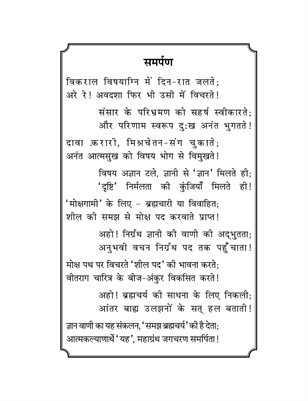 समर्पण
विकराल विषयाग्नि में दिन-रात जलते;
अरे रे! अवदशा फिर भी उसी में विचरते!
संसार के परिभ्रमण को सहर्ष स्वीकारते;
और परिणाम स्वरूप दुःख अनंत भुगतते!
दावा करारी, मिश्रचेतन-संग चुकाते;
अनंत आत्मसुख को विषय भोग से विमुखते!
विषय अज्ञान टले, ज्ञानी से ‘ज्ञान’ मिलते ही;
‘दृष्टि’ निर्मलता की कुंजियाँ मिलते ही!
‘मोक्षगामी’ के लिए - ब्रह्मचारी या विवाहित;
शील की समझ से मोक्ष पद करवाते प्राप्त!
अहो! निर्ग्रंथ ज्ञानी की वाणी की अद्‌भुतता;
अनुभवी वचन निर्ग्रंथ पद तक पहुँचाता!
मोक्ष पथ पर विचरते ‘शील पद’ की भावना करते;
वीतराग चारित्र के बीज-अंकुर विकसित करते!
अहो! ब्रह्मचर्य की साधना के लिए निकली;
आंतर बाह्य उलझनों के सत् हल बताती!
ज्ञान वाणी का यह संकलन, ‘समझ ब्रह्मचर्य’ की है देता;
आत्मकल्याणार्थे ‘यह’, महाग्रंथ जगचरण समर्पिता!